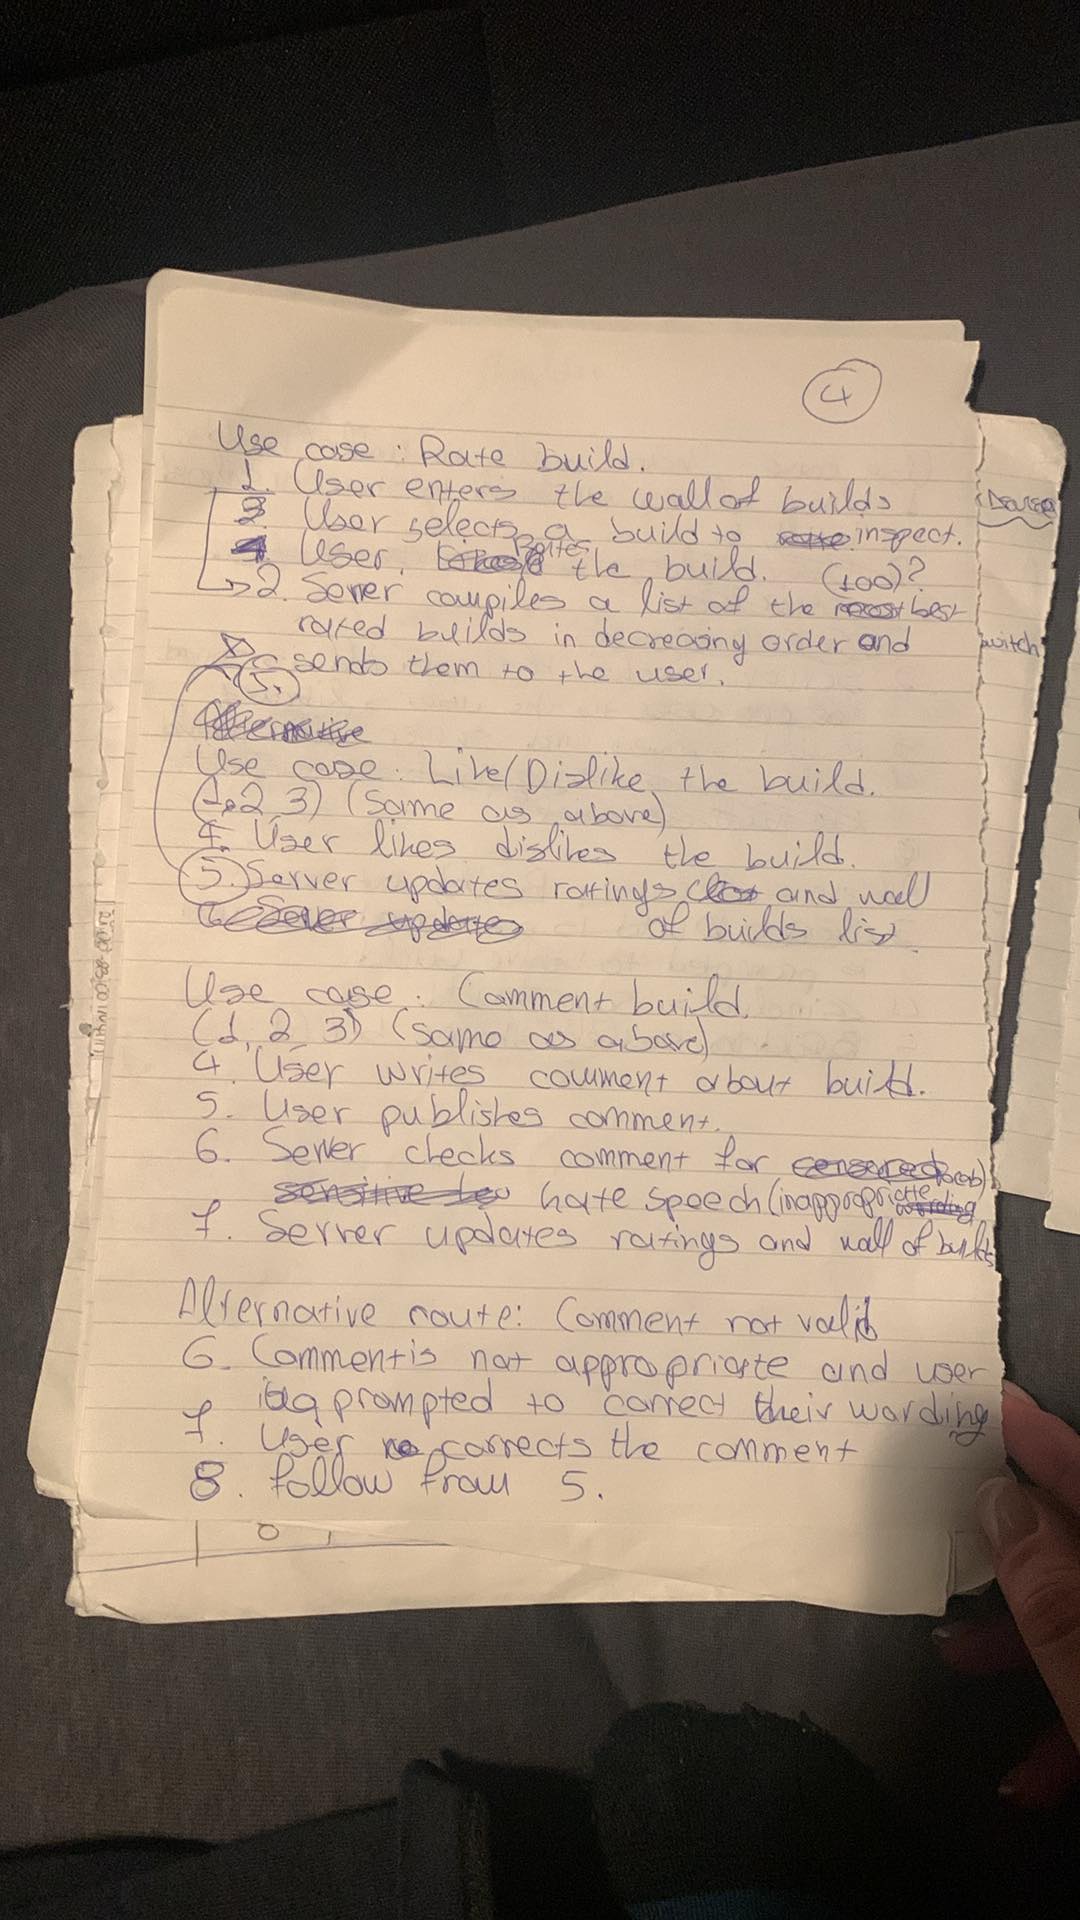 4
Use case : Rate build.
1. User enters the wall of builds
3. User selects a build to inspect.
4. User rates the build. (100)?
2. Server compiles a list of the best
rated builds in decreasing order and
sends them to the user.
5.
Alternative
Use case : Like/Dislike the build.
(1, 2, 3) (same as above)
4. User likes dislikes the build.
5. Server updates ratings and wall
6. Server update of builds list.
Use case : Comment build.
(1, 2, 3) (same as above)
4. User writes comment about build.
5. User publishes comment.
6. Server checks comment for censored
sensitive hate speech (inappropriate
7. Server updates ratings and wall of builds
Alternative route: Comment not valid
6. Comment is not appropriate and user
prompted to correct their wording
7. User corrects the comment
8. follow from 5.